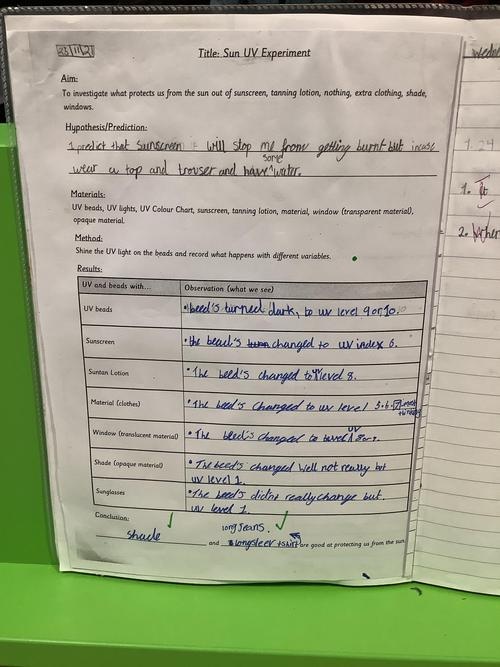 23/11/21
Title: Sun UV Experiment
Aim:
To investigate what protects us from the sun out of sunscreen, tanning lotion, nothing, extra clothing, shade,
windows.
Hypothesis/Prediction:
I predict that Sunscreen will stop me from getting burnt but incase
wear a top and trouser and have some water.
Materials:
UV beads, UV lights, UV Colour Chart, sunscreen, tanning lotion, material, window (transparent material),
opaque material.
Method:
Shine the UV light on the beads and record what happens with different variables.
Results:
UV and beads with... Observation (what we see)
UV beads • beed's turned dark, to uv level 9 or 10.
Sunscreen • the bead's changed to uv index 6.
Suntan Lotion • The beed's changed to uv level 8.
Material (clothes) • The bed's Changed to uv level 3.6.
Window (translucent material) • The beed's changed to UV level
Shade (opaque material) • The beed's changed Well not really but
uv level 1.
Sunglasses • The beed's didnt really change but.
uv level 1.
Conclusion:
long jeans.
shade and longsleev tshirt are good at protecting us from the sun.
Wedne
1. 24
1. it
2. When